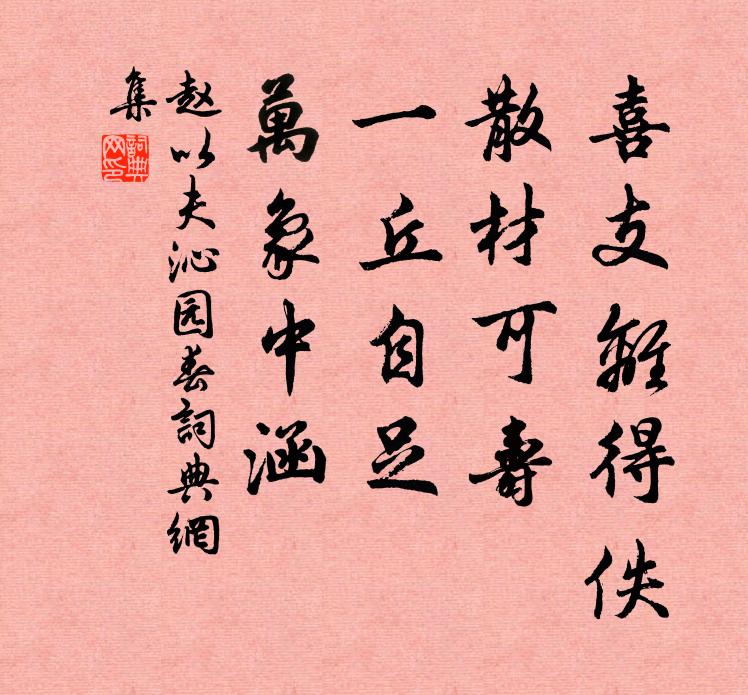 喜支離得佚
散材可壽
一丘自足
萬象中涵
赵以夫沁园春詞典網
集
詞典
网印